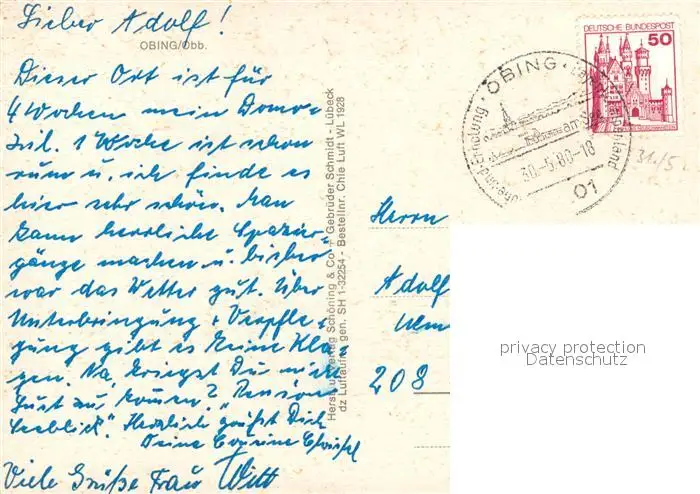 Lieber Adolf!
OBING/Obb.
Dieser Ort ist für
4 Wochen mein Domi-
zil. 1 Woche ist schon
rum u. ich finde es
hier sehr schön. Man
kann herrliche Spazier-
gänge machen u. bisher
war das Wetter gut. Über
Unterbringung + Verpfle-
gung gibt es keine Kla-
gen. Na, kriegst Du nicht
Lust zu kommen? "Pension
Seeblick". Herzlich grüßt Dich
Deine Cousine Christel
Viele Grüße Frau Witt
Herst. u. Verlag Schöning & Co + Gebrüder Schmidt - Lübeck
dz Luftaufn. gen. SH 1-32254 - Bestellnr. Chie Luft WL 1928
DEUTSCHE BUNDESPOST
50
OBING
am See
30.-5.80-18
01
31/5
Herrn
Adolf
Ulm
208
privacy protection
Datenschutz